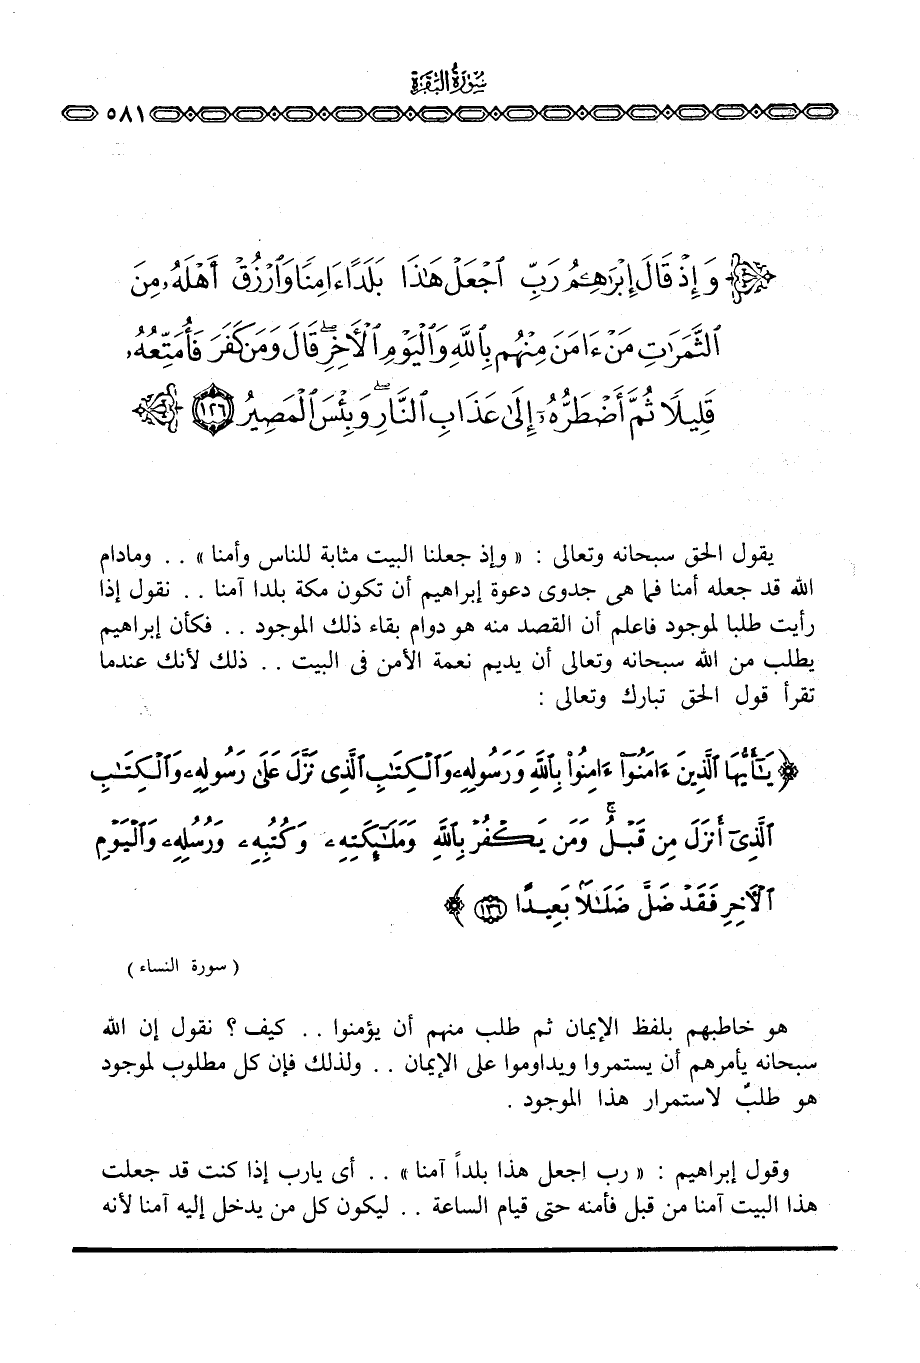 سُورَةُ البَقَرَةِ
٥٨١
وَإِذْ قَالَ إِبْرَٰهِـۧمُ رَبِّ ٱجْعَلْ هَٰذَا بَلَدًا ءَامِنًا وَٱرْزُقْ أَهْلَهُۥ مِنَ
ٱلثَّمَرَٰتِ مَنْ ءَامَنَ مِنْهُم بِٱللَّهِ وَٱلْيَوْمِ ٱلْأٓخِرِ ۖ قَالَ وَمَن كَفَرَ فَأُمَتِّعُهُۥ
قَلِيلًا ثُمَّ أَضْطَرُّهُۥٓ إِلَىٰ عَذَابِ ٱلنَّارِ ۖ وَبِئْسَ ٱلْمَصِيرُ ١٢٦
يقول الحق سبحانه وتعالى : « وإذ جعلنا البيت مثابة للناس وأمنا » . . ومادام
الله قد جعله أمنا فما هى جدوى دعوة إبراهيم أن تكون مكة بلدا آمنا . . نقول إذا
رأيت طلبا لموجود فاعلم أن القصد منه هو دوام بقاء ذلك الموجود . . فكأن إبراهيم
يطلب من الله سبحانه وتعالى أن يديم نعمة الأمن فى البيت . . ذلك لأنك عندما
تقرأ قول الحق تبارك وتعالى :
﴿ يَٰٓأَيُّهَا ٱلَّذِينَ ءَامَنُوٓا۟ ءَامِنُوا۟ بِٱللَّهِ وَرَسُولِهِۦ وَٱلْكِتَٰبِ ٱلَّذِى نَزَّلَ عَلَىٰ رَسُولِهِۦ وَٱلْكِتَٰبِ
ٱلَّذِىٓ أَنزَلَ مِن قَبْلُ ۚ وَمَن يَكْفُرْ بِٱللَّهِ وَمَلَٰٓئِكَتِهِۦ وَكُتُبِهِۦ وَرُسُلِهِۦ وَٱلْيَوْمِ
ٱلْأٓخِرِ فَقَدْ ضَلَّ ضَلَٰلًۢا بَعِيدًا ١٣٦ ﴾
( سورة النساء )
هو خاطبهم بلفظ الإيمان ثم طلب منهم أن يؤمنوا . . كيف ؟ نقول إن الله
سبحانه يأمرهم أن يستمروا ويداوموا على الإيمان . . ولذلك فإن كل مطلوب لموجود
هو طلبٌ لاستمرار هذا الموجود .
وقول إبراهيم : « رب اجعل هذا بلداً آمنا » . . أى يارب إذا كنت قد جعلت
هذا البيت آمنا من قبل فأمنه حتى قيام الساعة . . ليكون كل من يدخل إليه آمنا لأنه